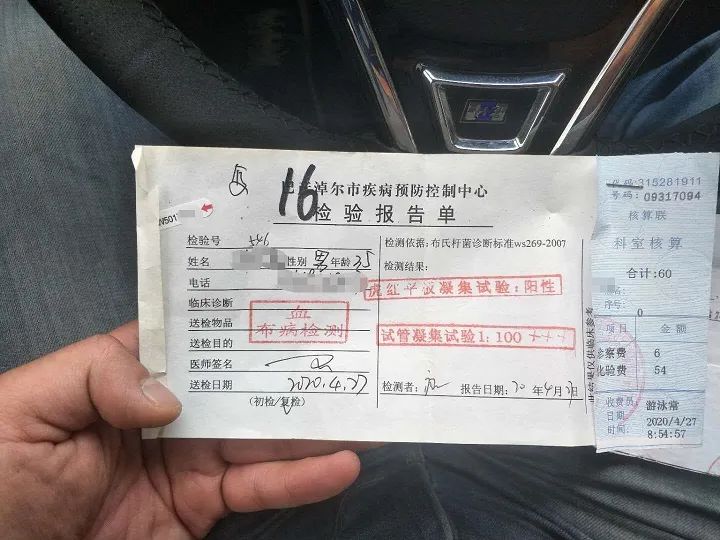 16
巴彦淖尔市疾病预防控制中心
检验报告单
检验号 546
姓名 性别 男 年龄 35
电话
临床诊断
送检物品 血
布病检测
送检目的
医师签名
送检日期 2020.4.27
(初检/复检)
检测依据:布氏杆菌诊断标准ws269-2007
检测结果:
虎红平板凝集试验:阳性
试管凝集试验1:100 +++
检测者: 报告日期:20 年4月 日
代码:315281911
号码:09317094
核算联
科室核算
合计:60
序号: 0
项目 金额
诊察费 6
化验费 54
收费员: 游泳常
日期: 2020/4/27
时间: 8:54:57